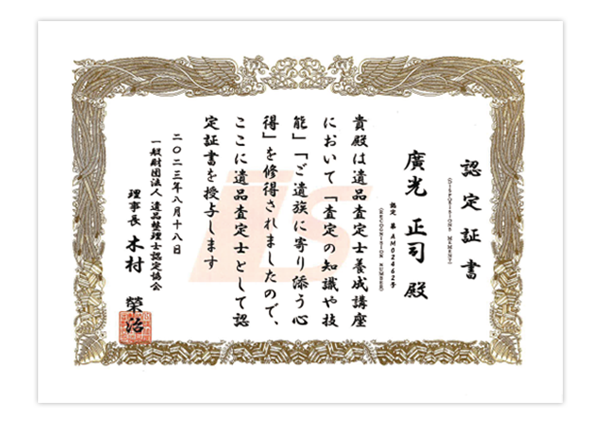 認定証書
(DISPOSITIONS MAMENT)
廣光 正司 殿
認定 第 AM02462号
(RECOGNITION NUMBER)
貴殿は遺品査定士養成講座
において「査定の知識や技
能」「ご遺族に寄り添う心
得」を修得されましたので、
ここに遺品査定士として認
定証書を授与します
二〇二三年八月十八日
一般財団法人 遺品整理士認定協会
理事長 木村 榮治